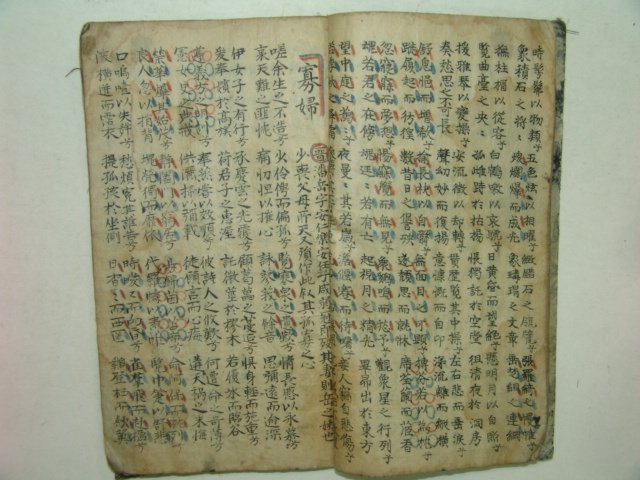 時髣髴以物類兮 五色炫以相曜兮 緻錯石之瓴甓兮 張羅綺之幔帷兮
象積石之將〻 爛耀耀而成光 象瑇瑁之文章 垂楚組之連綱
撫柱楣以從容兮 白鶴噭以哀號兮 日黃昏而望絕兮 懸明月以自照兮
覽曲臺之央〻 孤雌跱於枯楊 悵獨託於空堂 徂清夜於洞房
援雅琴以變調兮 案流徵以却轉兮 貫歷覽其中操兮 左右悲而垂淚兮
奏愁思之不可長 聲幼妙而復揚 意慷慨而自卬 涕流離而縱橫
舒息悒而增欷兮 揄長袂以自翳兮 無面目之可顯兮 摶芬若以爲枕兮
蹝履起而彷徨 數昔日之諐殃 遂頹思而就牀 席荃蘭而茝香
忽寢寐而夢想兮 惕寤覺而無見兮 衆鷄鳴而愁予兮 觀衆星之行列兮
魄若君之在傍 若有亡 起視月之精光 畢昴出於東方
望中庭之藹〻兮 夜曼〻其若歲兮 澹偃蹇而待曙兮 妾人竊自悲傷兮
寡婦
嗟余生之不造兮 少伶俜而偏孤兮 覽寒泉之遺歎兮 情長慼以永慕兮
哀天難之匪忱 痛忉怛以摧心 詠蓼莪之餘音 思彌遠而逾深
伊女子之有行兮 承慶雲之光覆兮 顧葛藟之蔓延兮 懼身輕而施重兮
爰奉嬪於高族 荷君子之惠渥 託微莖於樛木 若履氷而臨谷
遵義方之明訓兮 奉蒸嘗以效順兮 彼詩人之攸歎兮 何遭命之奇薄兮
憲女史之典戒 供灑掃以彌載 徒願言而心痗 遘天禍之未悔
榮華曄其始茂兮 靜闔門以窮居兮 易錦茵以苫席兮 命阿保而就列兮
良人忽以捐背 塊煢獨而靡依 代羅幬以素帷 覽巾箑以舒悲
口嗚咽以失聲兮 愁煩冤其誰告兮 時曖〻而向昏兮 雀群飛而赴楹兮
淚橫迸而霑衣 提孤孩於坐側 日杳〻而西匿 鷄登棲而斂翼